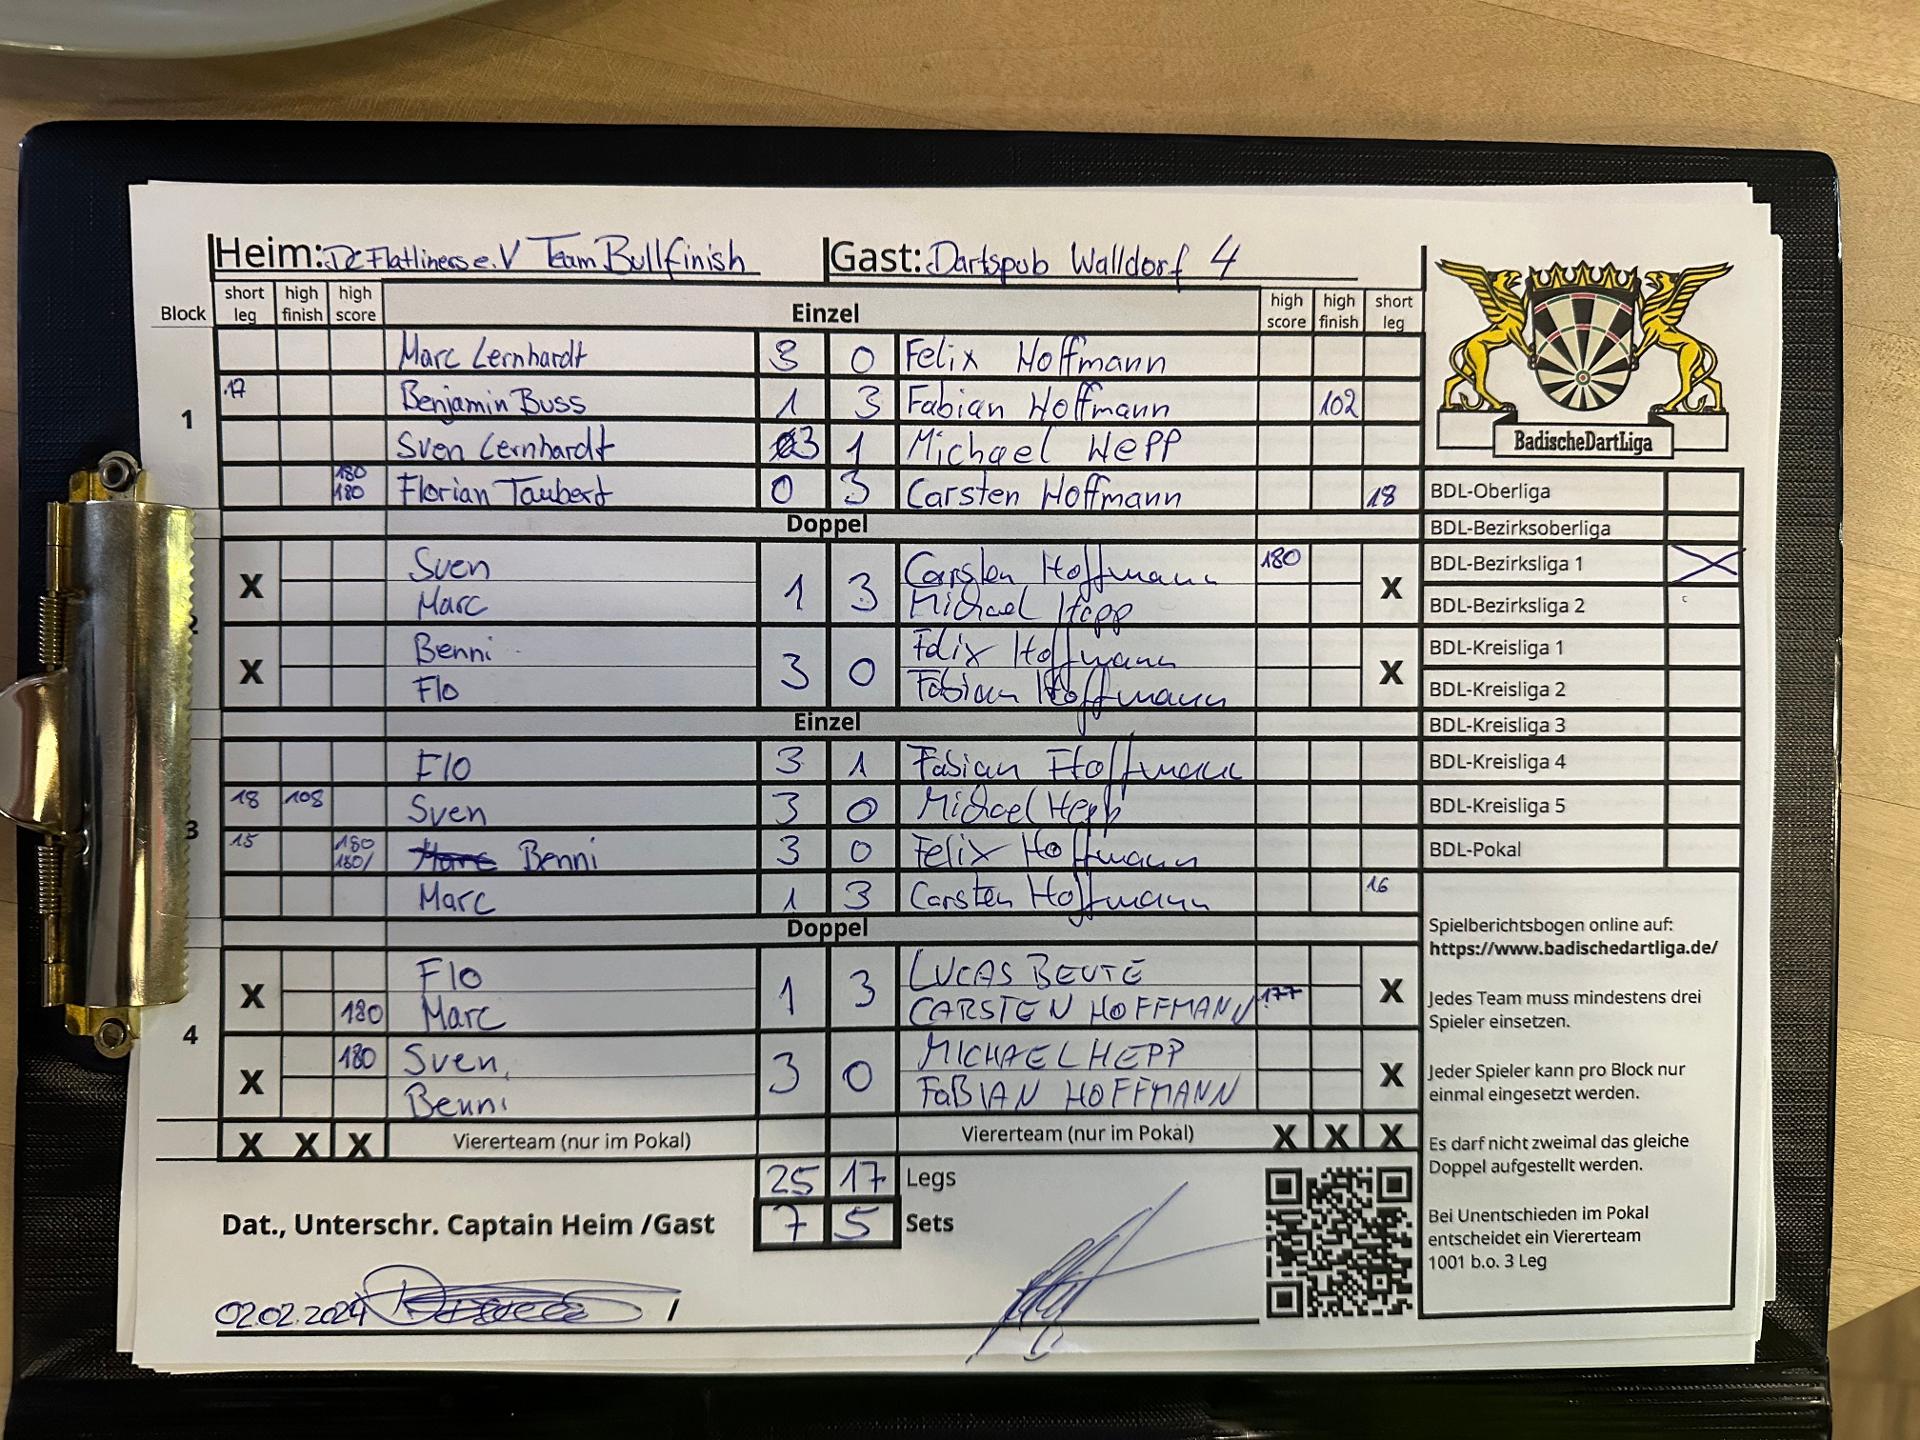 Heim: DC Flatliners e.V Team Bullfinish Gast: Dartspub Walldorf 4
Block short leg high finish high score Einzel high score high finish short leg
Marc Lernhardt 3 0 Felix Hoffmann
17 Benjamin Buss 1 3 Fabian Hoffmann 102
1
Sven Lernhardt 3 1 Michael Hepp
180 180 Florian Taubert 0 3 Carsten Hoffmann 18
Doppel
X Sven 1 3 Carsten Hoffmann 180 X
Marc Michael Hepp
2
X Benni 3 0 Felix Hoffmann X
Flo Fabian Hoffmann
Einzel
Flo 3 1 Fabian Hoffmann
18 108 Sven 3 0 Michael Hepp
3
15 180 180/ Marc Benni 3 0 Felix Hoffmann
Marc 1 3 Carsten Hoffmann 16
Doppel
X Flo 1 3 LUCAS BEUTE X
180 Marc CARSTEN HOFFMANN 177
4
X 180 Sven 3 0 MICHAEL HEPP X
Benni FABIAN HOFFMANN
X X X Viererteam (nur im Pokal) Viererteam (nur im Pokal) X X X
25 17 Legs
Dat., Unterschr. Captain Heim /Gast 7 5 Sets
02.02.2024 /
BadischeDartLiga
BDL-Oberliga
BDL-Bezirksoberliga
BDL-Bezirksliga 1 X
BDL-Bezirksliga 2
BDL-Kreisliga 1
BDL-Kreisliga 2
BDL-Kreisliga 3
BDL-Kreisliga 4
BDL-Kreisliga 5
BDL-Pokal
Spielberichtsbogen online auf:
https://www.badischedartliga.de/
Jedes Team muss mindestens drei
Spieler einsetzen.
Jeder Spieler kann pro Block nur
einmal eingesetzt werden.
Es darf nicht zweimal das gleiche
Doppel aufgestellt werden.
Bei Unentschieden im Pokal
entscheidet ein Viererteam
1001 b.o. 3 Leg